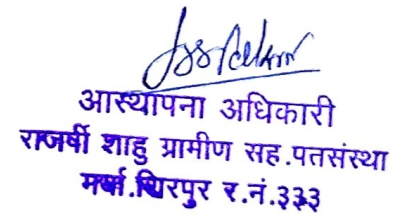 आस्थापना अधिकारी
राजर्षी शाहु ग्रामीण सह.पतसंस्था
मर्या.शिरपुर र.नं.३३३